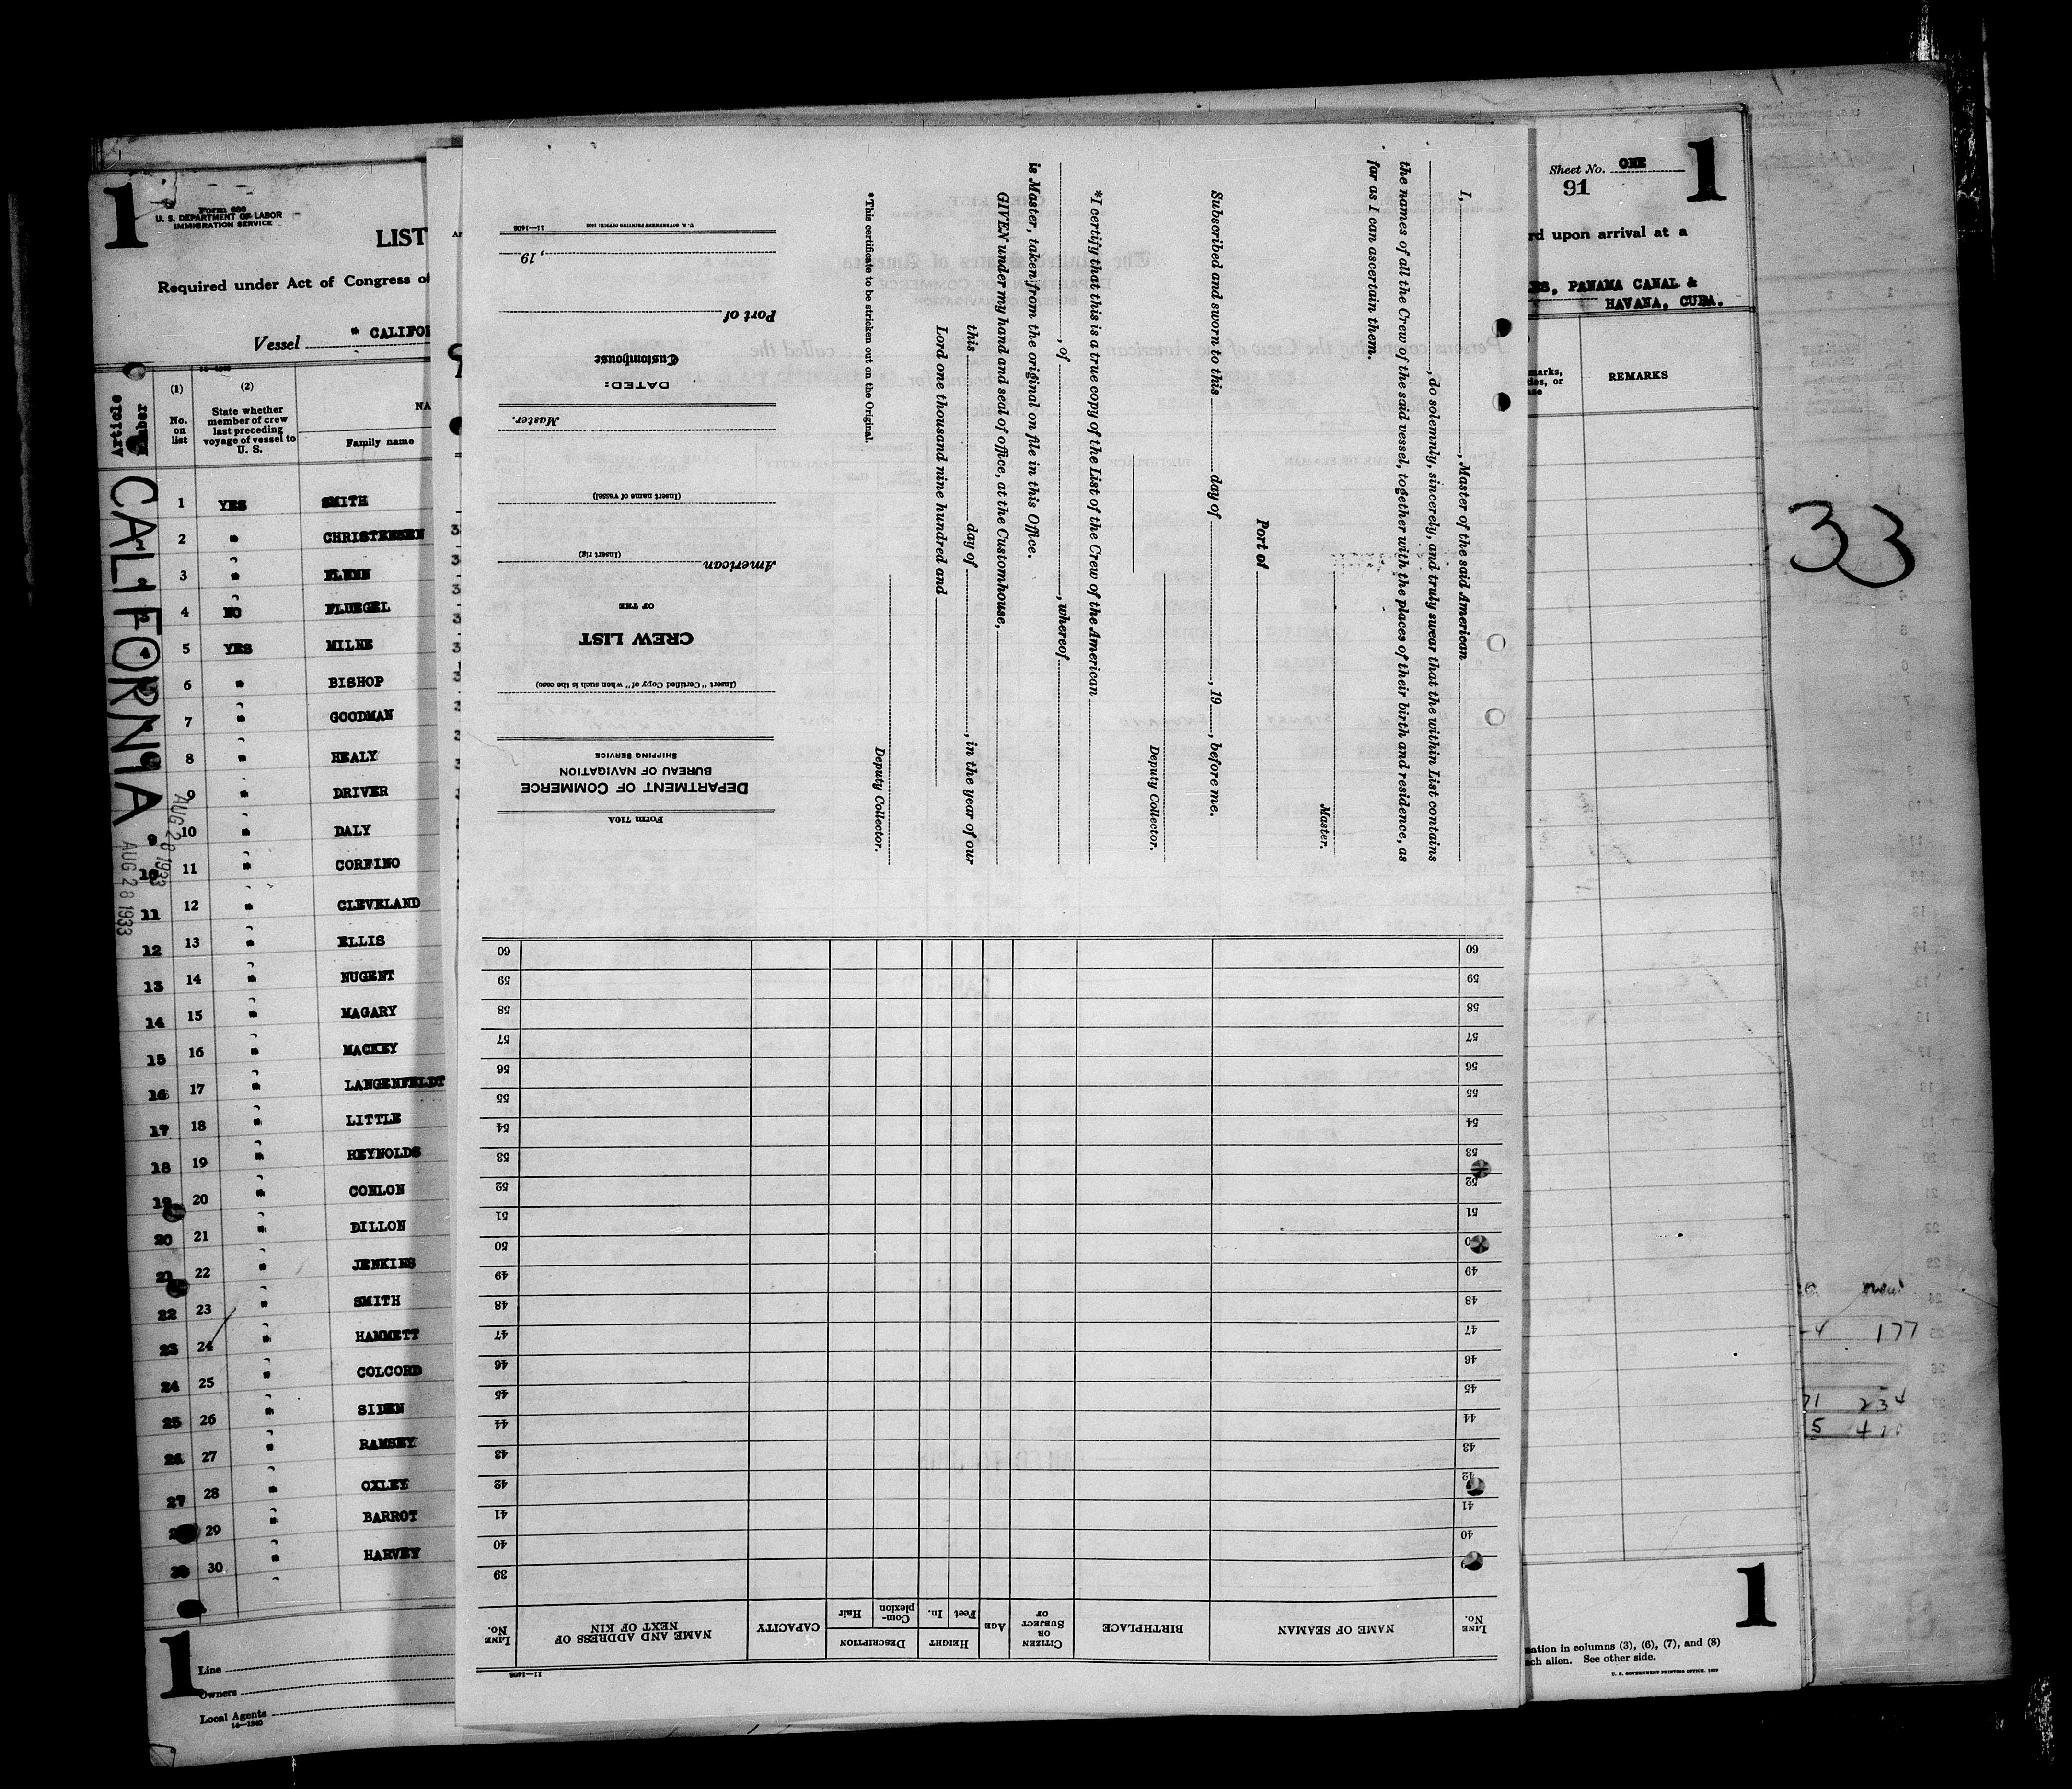 1
Form 680
U. S. DEPARTMENT OF LABOR
IMMIGRATION SERVICE
LIST
Required under Act of Congress of
Vessel " CALIFOR
Article
Number
(1)
No.
on
list
(2)
State whether
member of crew
last preceding
voyage of vessel to
U. S.
NA
Family name
CALIFORNIA
AUG 28 1933
AUG 28 1933
1 YES SMITH
2 " CHRISTENSEN
3 " FLYNN
4 NO FLUEGEL
5 YES MILNE
6 " BISHOP
7 " GOODMAN
8 " HEALY
9 " DRIVER
9 10 " DALY
10 11 " CORFINO
11 12 " CLEVELAND
12 13 " ELLIS
13 14 " NUGENT
14 15 " MAGARY
15 16 " MACKEY
16 17 " LANGENFELDT
17 18 " LITTLE
18 19 " REYNOLDS
19 20 " CONLON
20 21 " DILLON
21 22 " JENKINS
22 23 " SMITH
23 24 " HAMMETT
24 25 " COLCORD
25 26 " SIDEN
26 27 " RAMSEY
27 28 " OXLEY
29 " BARROT
30 " HARVEY
1
Line
Owners
Local Agents
14—1940
Form 710A
DEPARTMENT OF COMMERCE
BUREAU OF NAVIGATION
SHIPPING SERVICE
(Insert "Certified Copy of" when such is the case)
CREW LIST
OF THE
American
(Insert rig)
(Insert name of vessel)
Master.
DATED:
Customhouse
Port of
, 19
U. S. GOVERNMENT PRINTING OFFICE: 1932 11—1408
I, , Master of the said American
, do solemnly, sincerely, and truly swear that the within List contains
the names of all the Crew of the said vessel, together with the places of their birth and residence, as
far as I can ascertain them.
Master.
Port of
Subscribed and sworn to this day of , 19 , before me.
Deputy Collector.
*I certify that this is a true copy of the List of the Crew of the American
, of , whereof
is Master, taken from the original on file in this Office.
GIVEN under my hand and seal of office, at the Customhouse,
this day of , in the year of our
Lord one thousand nine hundred and
Deputy Collector.
*This certificate to be stricken out on the Original.
11—1408
LINE
No.
NAME OF SEAMAN
BIRTHPLACE
CITIZEN
OR
SUBJECT
OF
AGE
HEIGHT
Feet
In.
DESCRIPTION
Com-
plexion
Hair
CAPACITY
NAME AND ADDRESS OF
NEXT OF KIN
LINE
No.
39
40 40
41 41
42 42
43 43
44 44
45 45
46 46
47 47
48 48
49 49
50
51 51
52 52
53 53
54 54
55 55
56 56
57 57
58 58
59 59
60 60
Sheet No. ONE
91
1
rd upon arrival at a
ES, PANAMA CANAL &
HAVANA, CUBA.
marks,
ties, or
ase
REMARKS
33
177
234
1
mation in columns (3), (6), (7), and (8)
ach alien. See other side.
U. S. GOVERNMENT PRINTING OFFICE